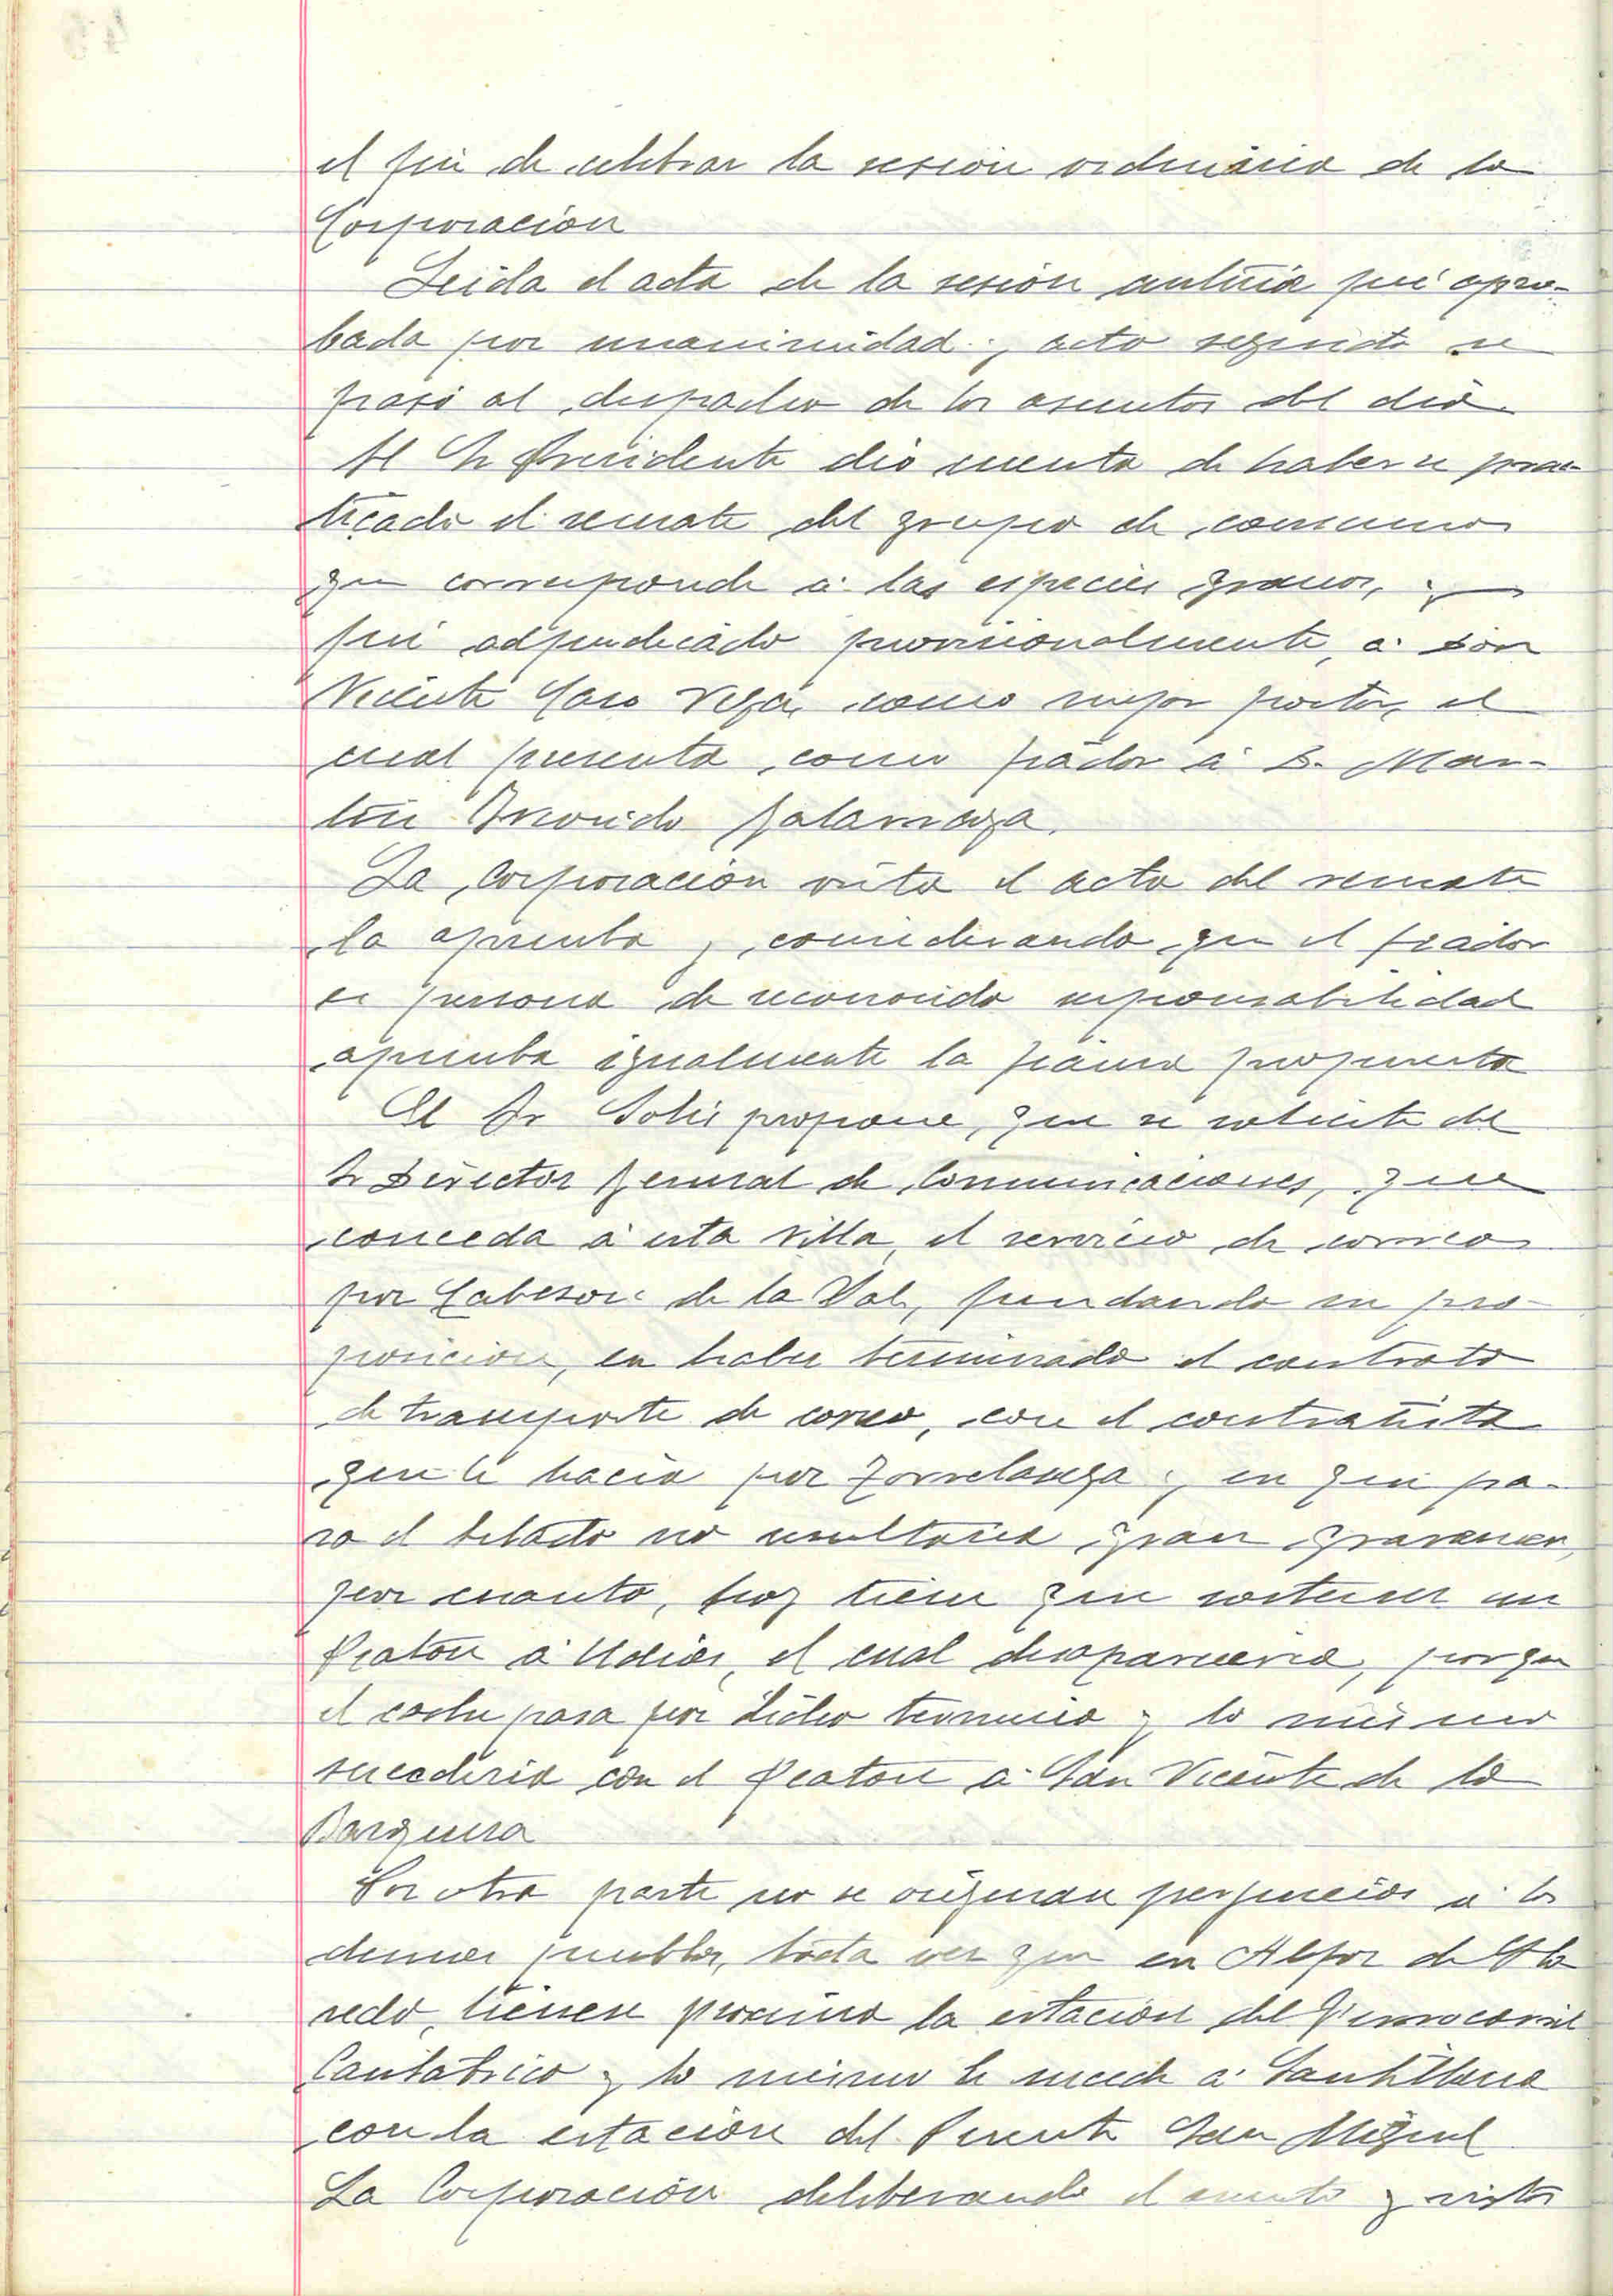 el fin de celebrar la sesion ordinaria de la
Corporacion
Leida el acta de la sesión anterior fué apro-
bada por unanimidad y acto seguido se
pasó al despacho de los asuntos del dia.
El Sr Presidente dió cuenta de haberse prac-
ticado el remate del grupo de consumos
que corresponde á las especies granos, y
fué adjudicado provisionalmente, á Don
Vicente Caso Vega, como mejor postor, el
cual presenta como fiador á D. Mar-
tin Galarraga.
La Corporación vista el acta del remate
la aprueba y considerando que el fiador
es persona de reconocida responsabilidad
aprueba igualmente la fianza propuesta
El Sr Solis propone, que se solicite del
Sr Director General de Comunicaciones, que
conceda á esta Villa, el servicio de correos
por Cabeson de la Sal, fundando su pro-
posicion, en haber terminado el contrato
de transporte de correo, con el contratista
que le hacia por Torrelavega y en que pa-
ra el Estado no resultaria gran gravamen,
por cuanto, hoy tiene que sostener un
Peaton á Udias, el cual desapareceria, porque
el coche pasa por dicho termino y lo mismo
sucederia con el Peaton á San Vicente de la
Barquera
Por otra parte no se originan perjuicios á los
demas pueblos, toda vez que en Alfoz de Llo
redo, tienen proxima la estacion del Ferrocarril
Cantabrico y lo mismo le sucede á Santillana
con la estacion del Puente San Miguel
La Corporación deliberando el asunto y vistas